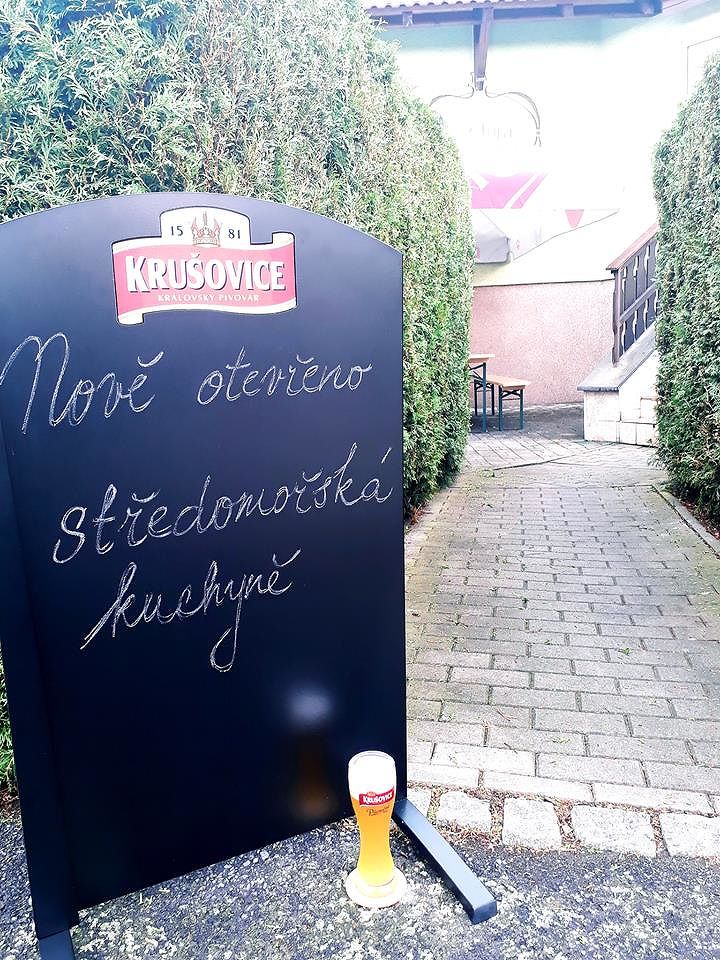 15 81
KRUŠOVICE
KRÁLOVSKÝ PIVOVAR
Nově otevřeno
středomořská
kuchyně
KRUŠOVICE